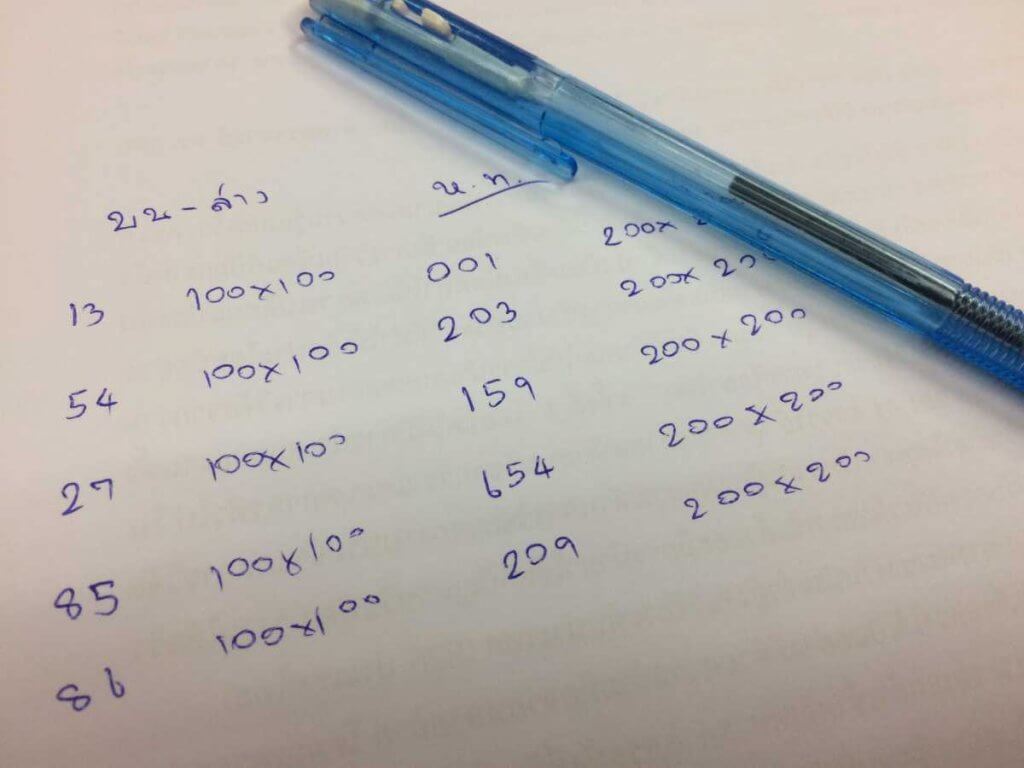 บน - ล่าง น.ท.
13 100×100 001 200×
54 100×100 203 200×200
27 100×100 159 200×200
85 100×100 654 200×200
86 100×100 209 200×200